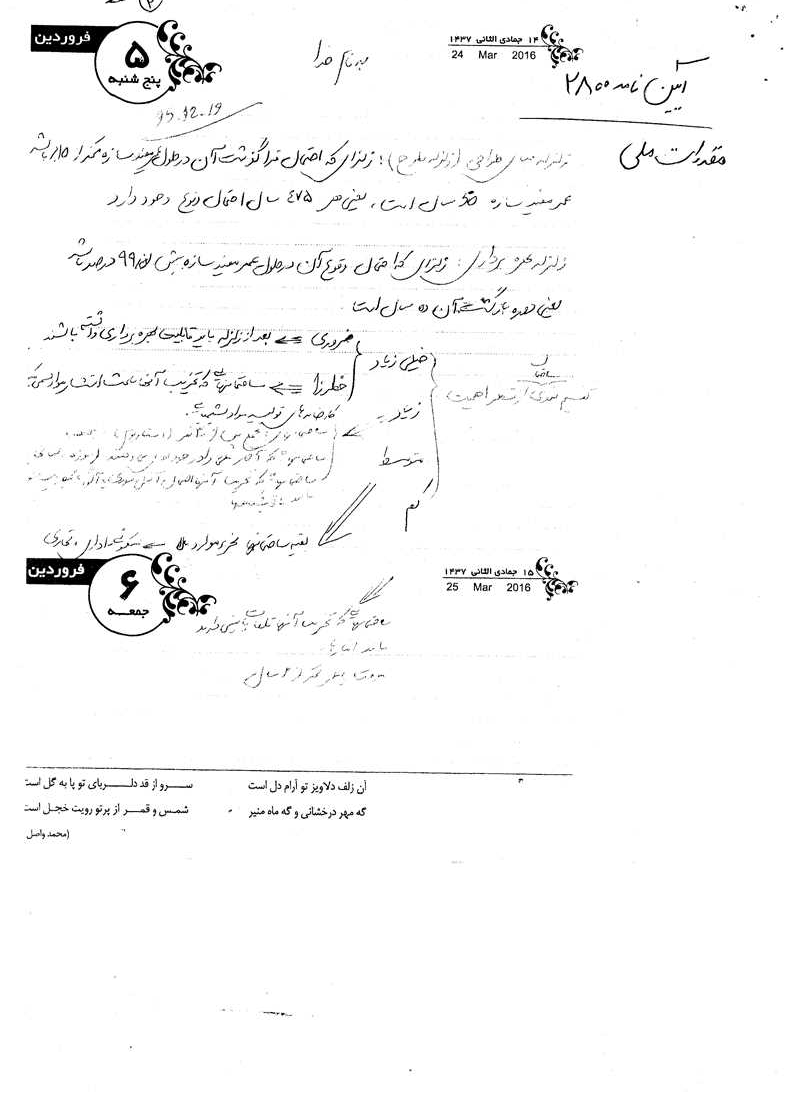 فروردین
۵
پنج شنبه
۱۴ جمادی الثانی ۱۴۳۷
24 Mar 2016
به نام خدا
آیین نامه ۲۸۰۰
95.12.19
مقررات ملی
زلزله مبنای طراحی (زلزله طرح): زلزله‌ای که احتمال فراگذشت آن در طول عمر مفید سازه کمتر از ۱۰٪ باشد
عمر مفید سازه ۵۰ سال است، یعنی هر ۴۷۵ سال احتمال وقوع وجود دارد
زلزله بهره برداری: زلزله‌ای که احتمال وقوع آن در طول عمر مفید سازه بیش از ۹۹ درصد باشد
یعنی دوره بازگشت آن ده سال است.
تقسیم بندی ساختمان از نظر اهمیت
خیلی زیاد
ضروری ⇐ بعد از زلزله باید قابلیت بهره برداری داشته باشند
خطرزا ⇐ ساختمانهایی که تخریب آنها باعث انتشار مواد سمی
کارخانه های تولید مواد شیمیایی
زیاد
متوسط
کم
بقیه ساختمانها بجز موارد بالا ⇐ مسکونی، اداری، تجاری
فروردین
۶
جمعه
۱۵ جمادی الثانی ۱۴۳۷
25 Mar 2016
ساختمانهایی که تخریب آنها تلفات پایینی دارند
مانند انبارها
کمتر از ۲ سال
آن زلف دلاویز تو آرام دل است
سرو از قد دلربای تو پا به گل است
گه مهر درخشانی و گه ماه منیر
شمس و قمر از پرتو رویت خجل است
(محمد واصل